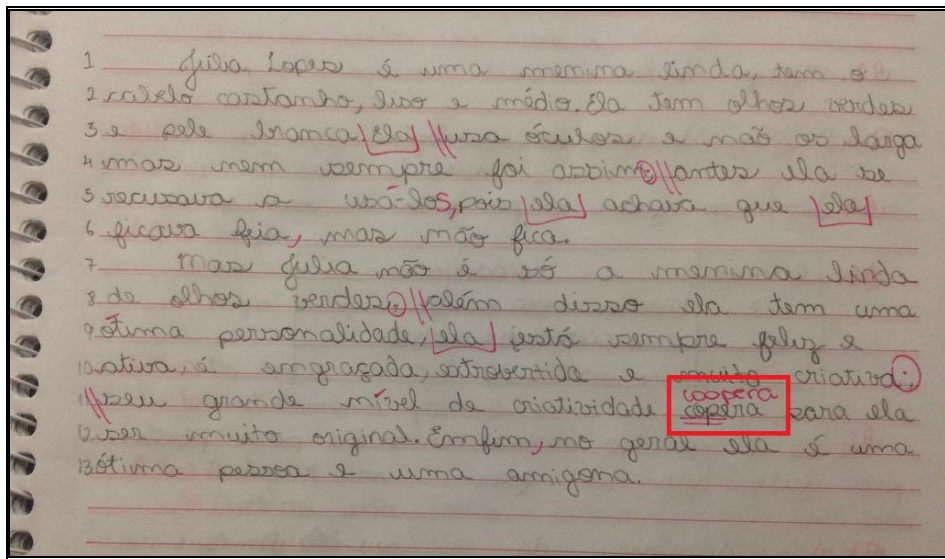 1 Júlia Lopes é uma menina linda, tem o
2 cabelo castanho, liso e médio. Ela tem olhos verdes
3 e pele branca [ela] || usa óculos e não os larga
4 mas nem sempre foi assim. || antes ela se
5 recusava a usá-los, pois [ela] achava que [ela]
6 ficava feia, mas não fica.
7 Mas Julia não é só a menina linda
8 de olhos verdes. || além disso ela tem uma
9 ótima personalidade, [ela] está sempre feliz e
10 ativa, é engraçada, extrovertida e muito criativa.
coopera
11 || seu grande nível de criatividade copéra para ela
12 ser muito original. Enfim, no geral ela é uma
13 ótima pessoa e uma amigona.